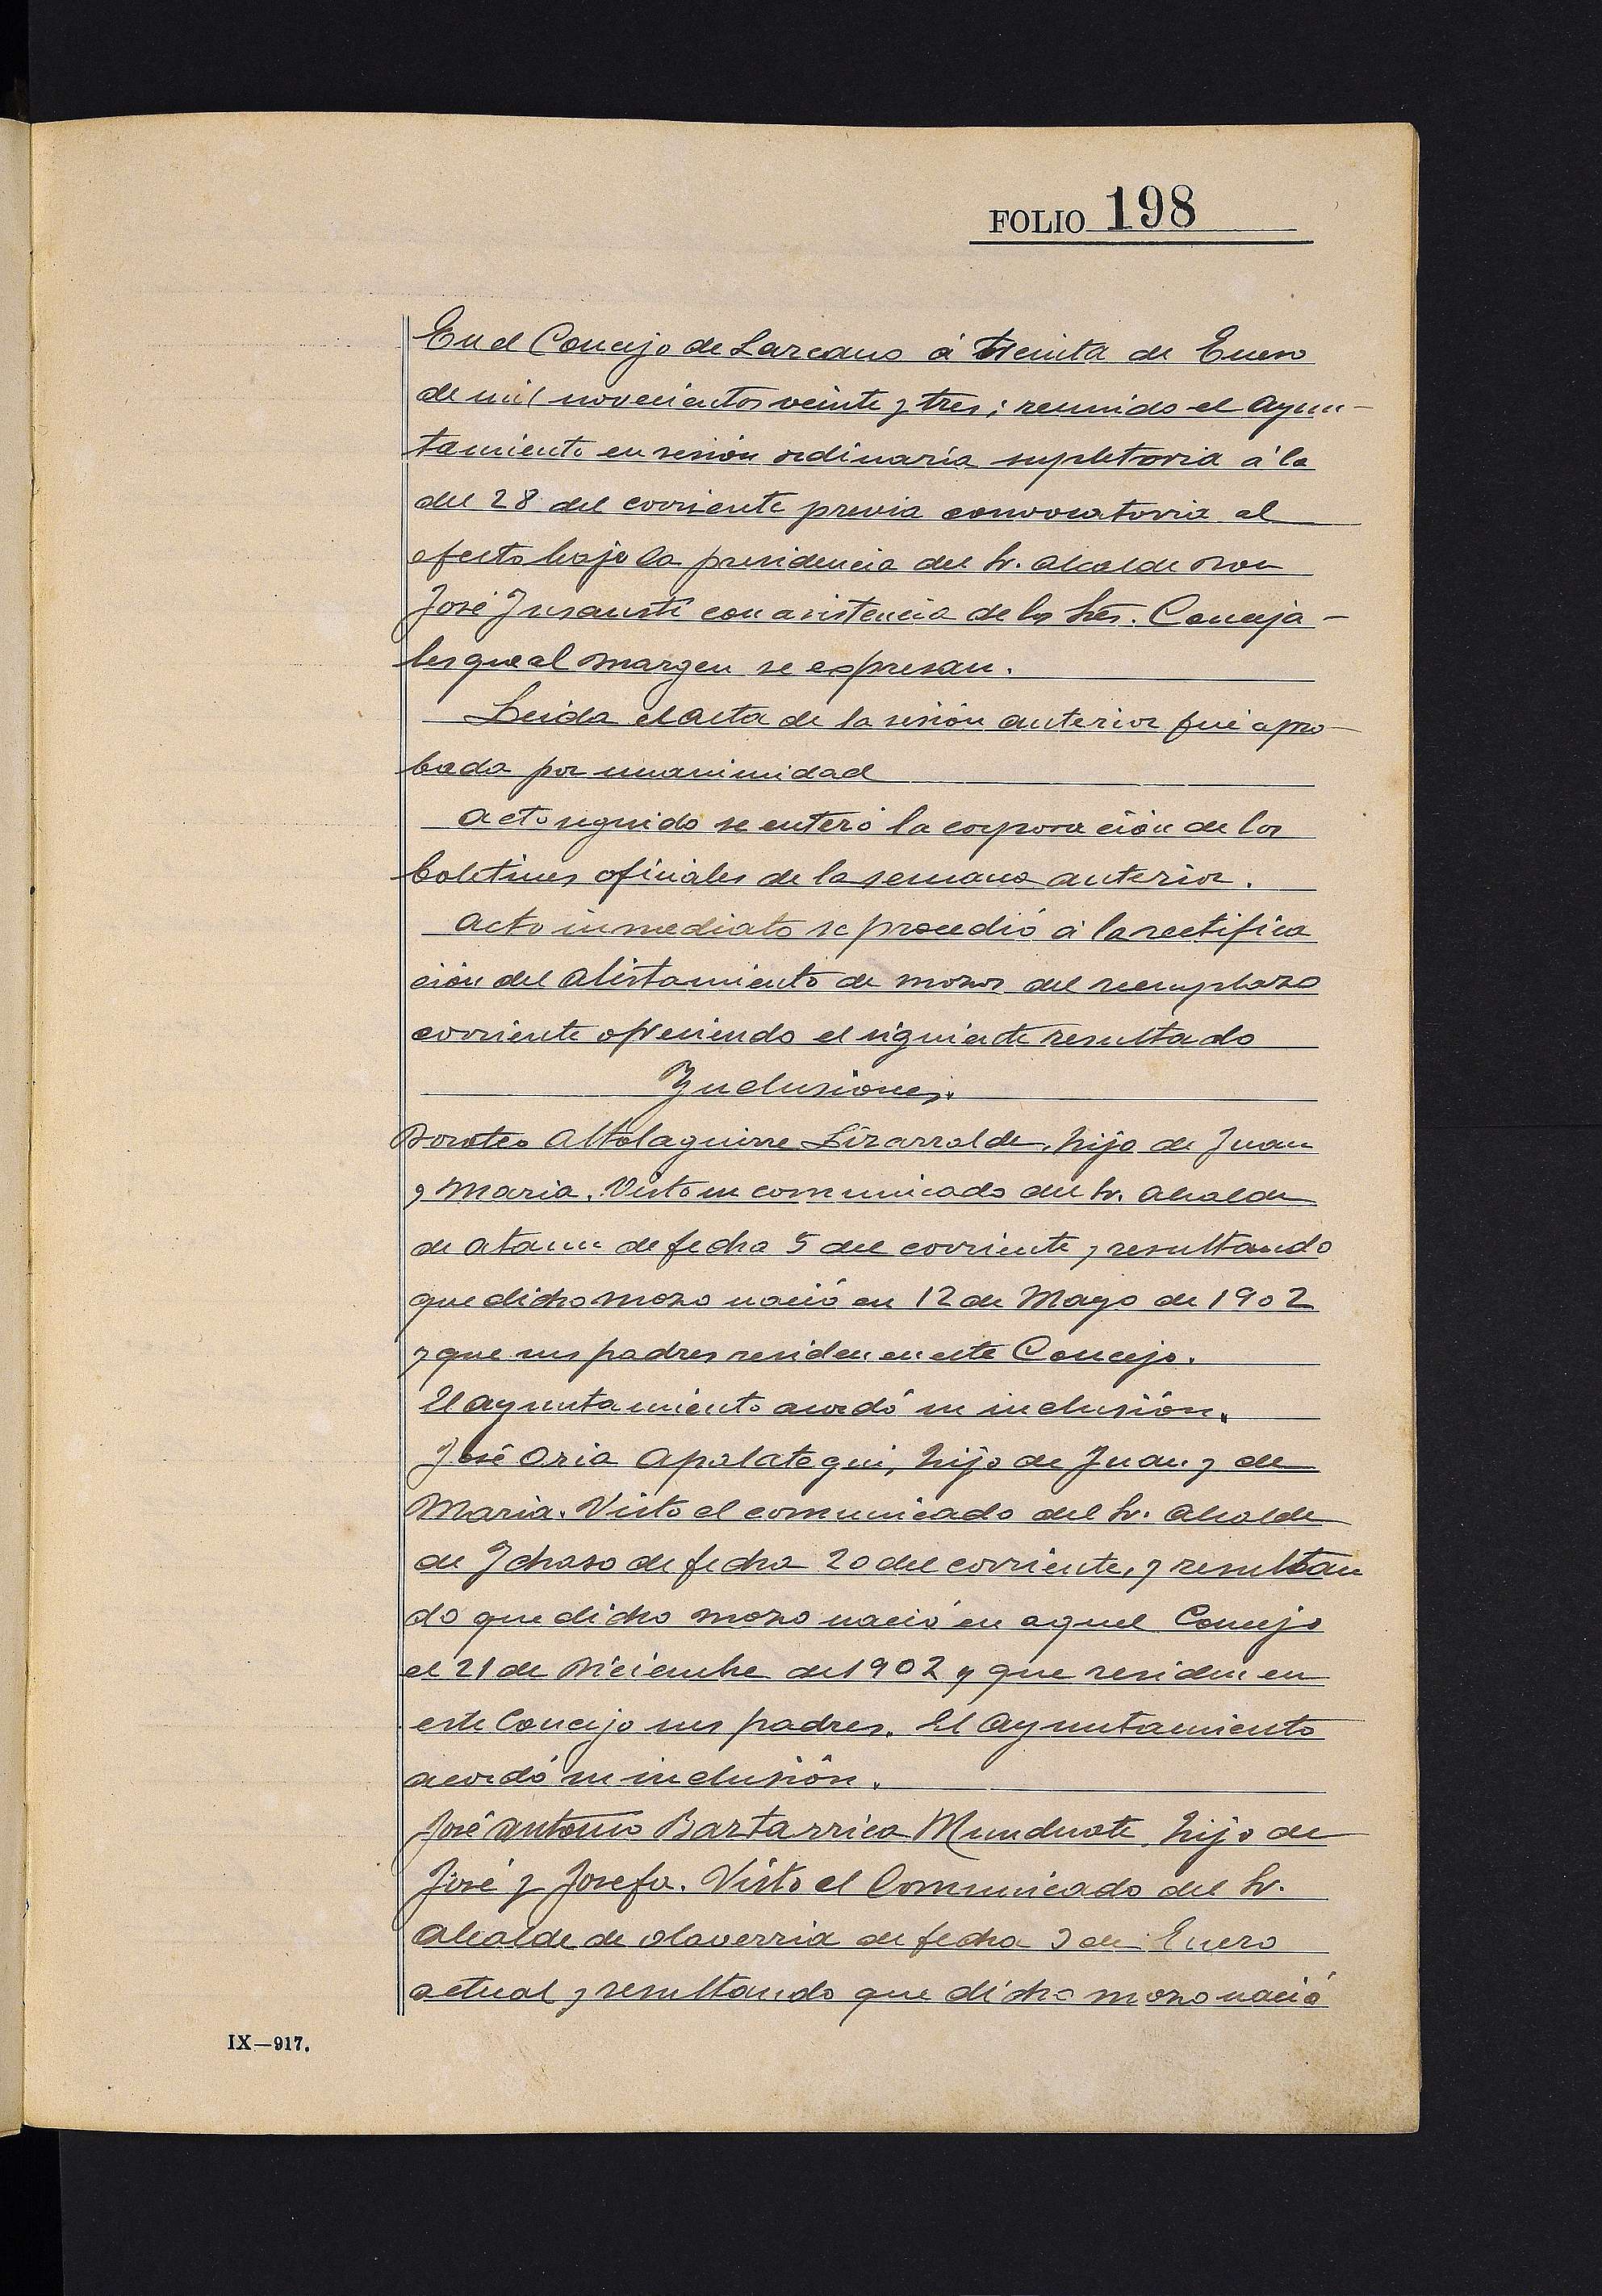 FOLIO 198
En el Concejo de Lazcano á treinta de Enero
de mil novecientos veinte y tres; reunido el Ayun-
tamiento en sesión ordinaria supletoria á la
del 28 del corriente previa convocatoria al
efecto bajo la presidencia del Sr. Alcalde Don
José Insausti con asistencia de los Sres. Conceja-
les que al margen se expresan.
Leida el acta de la sesión anterior fué apro-
bada por unanimidad
Acto seguido se enteró la corporación de los
boletines oficiales de la semana anterior.
Acto inmediato se procedió á la rectifica
ción del Alistamiento de mozos del reemplazo
corriente ofreciendo el siguiente resultado
Inclusiones.
Doroteo Altolaguirre Lizarralde, hijo de Juan
y Maria. Visto un comunicado del Sr. Alcalde
de Ataun de fecha 5 del corriente y resultando
que dicho mozo nació en 12 de Mayo de 1902
y que sus padres residen en este Concejo.
El Ayuntamiento acordó su inclusión.
José Oria Apalategui, hijo de Juan y de
Maria. Visto el comunicado del Sr. Alcalde
de Ichaso de fecha 20 del corriente, y resultan
do que dicho mozo nació en aquel Concejo
el 21 de Diciembre de 1902 y que residen en
este Concejo sus padres. El Ayuntamiento
acordó su inclusión.
José Antonio Bartarrica Munduate, hijo de
José y Josefa. Visto el Comunicado del Sr.
Alcalde de Olaverria de fecha de Enero
actual y resultando que dicho mozo nació
IX—917.